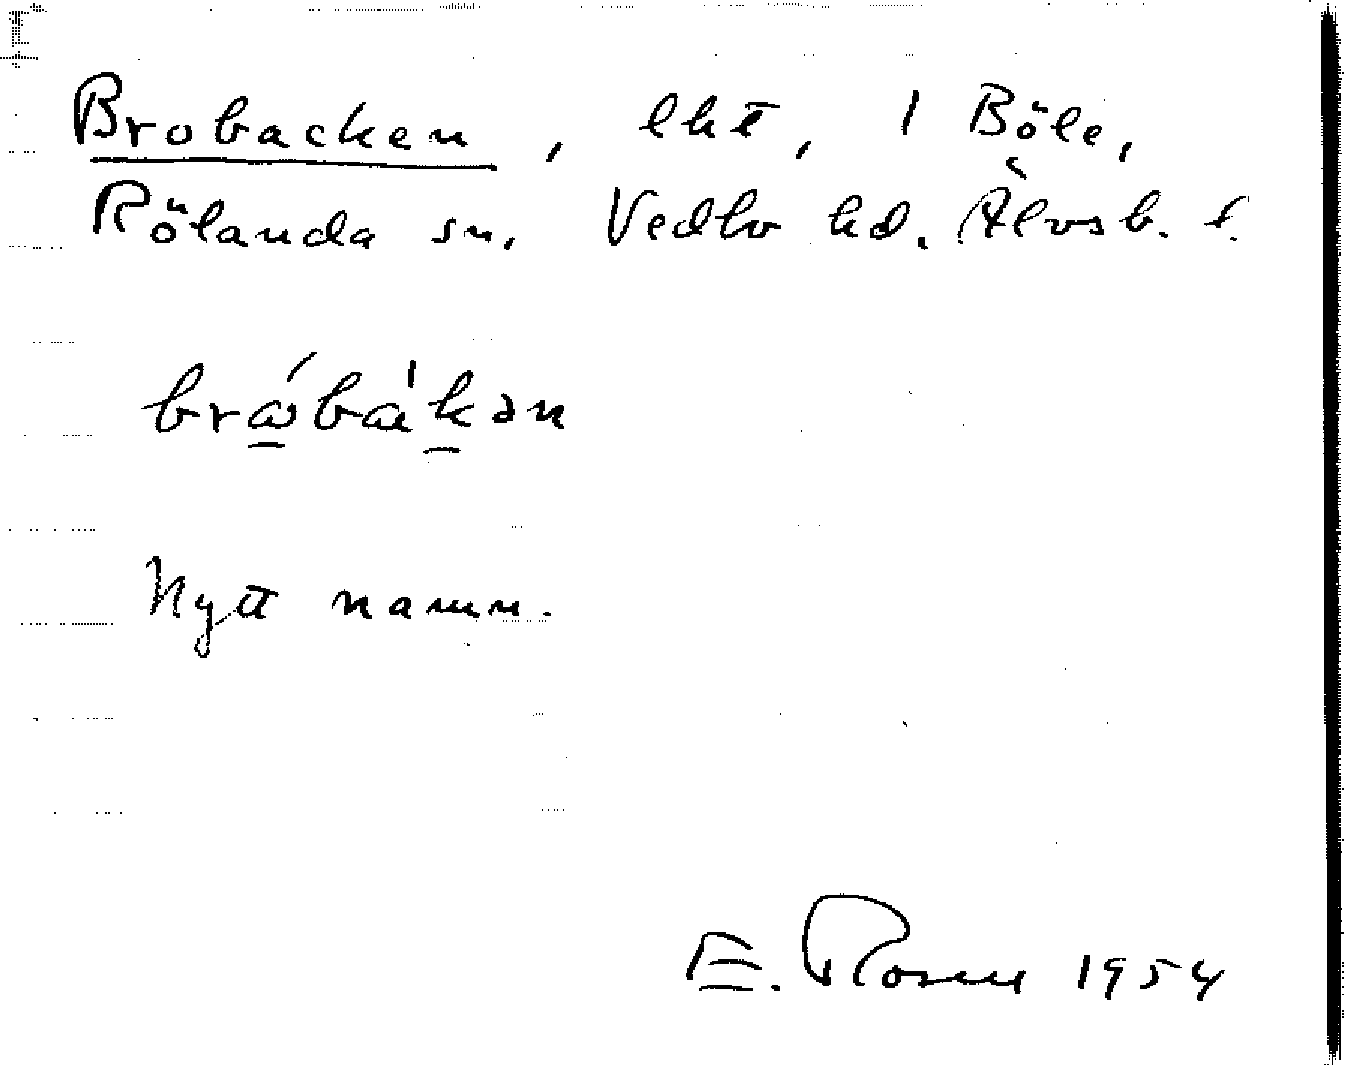 Brobacken, lht, 1 Böle,
Rölanda sn. Vedbo hd. Älvsb. l.
bråbákən
Nytt namn.
E. Rosell 1954